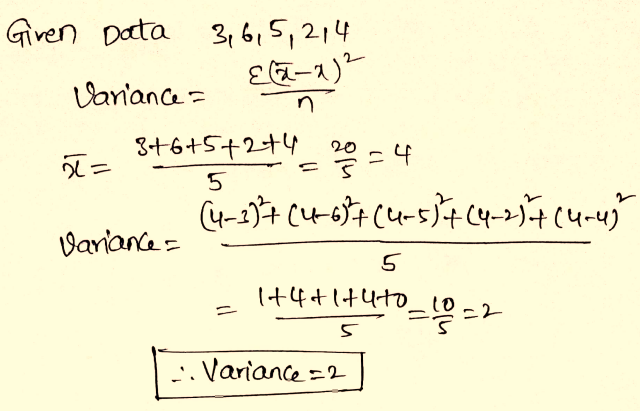 Given Data 3, 6, 5, 2, 4
Variance = Σ(x̄-x)² / n
x̄ = 3+6+5+2+4 / 5 = 20/5 = 4
Variance = (4-3)²+(4-6)²+(4-5)²+(4-2)²+(4-4)² / 5
= 1+4+1+4+0 / 5 = 10/5 = 2
∴ Variance = 2